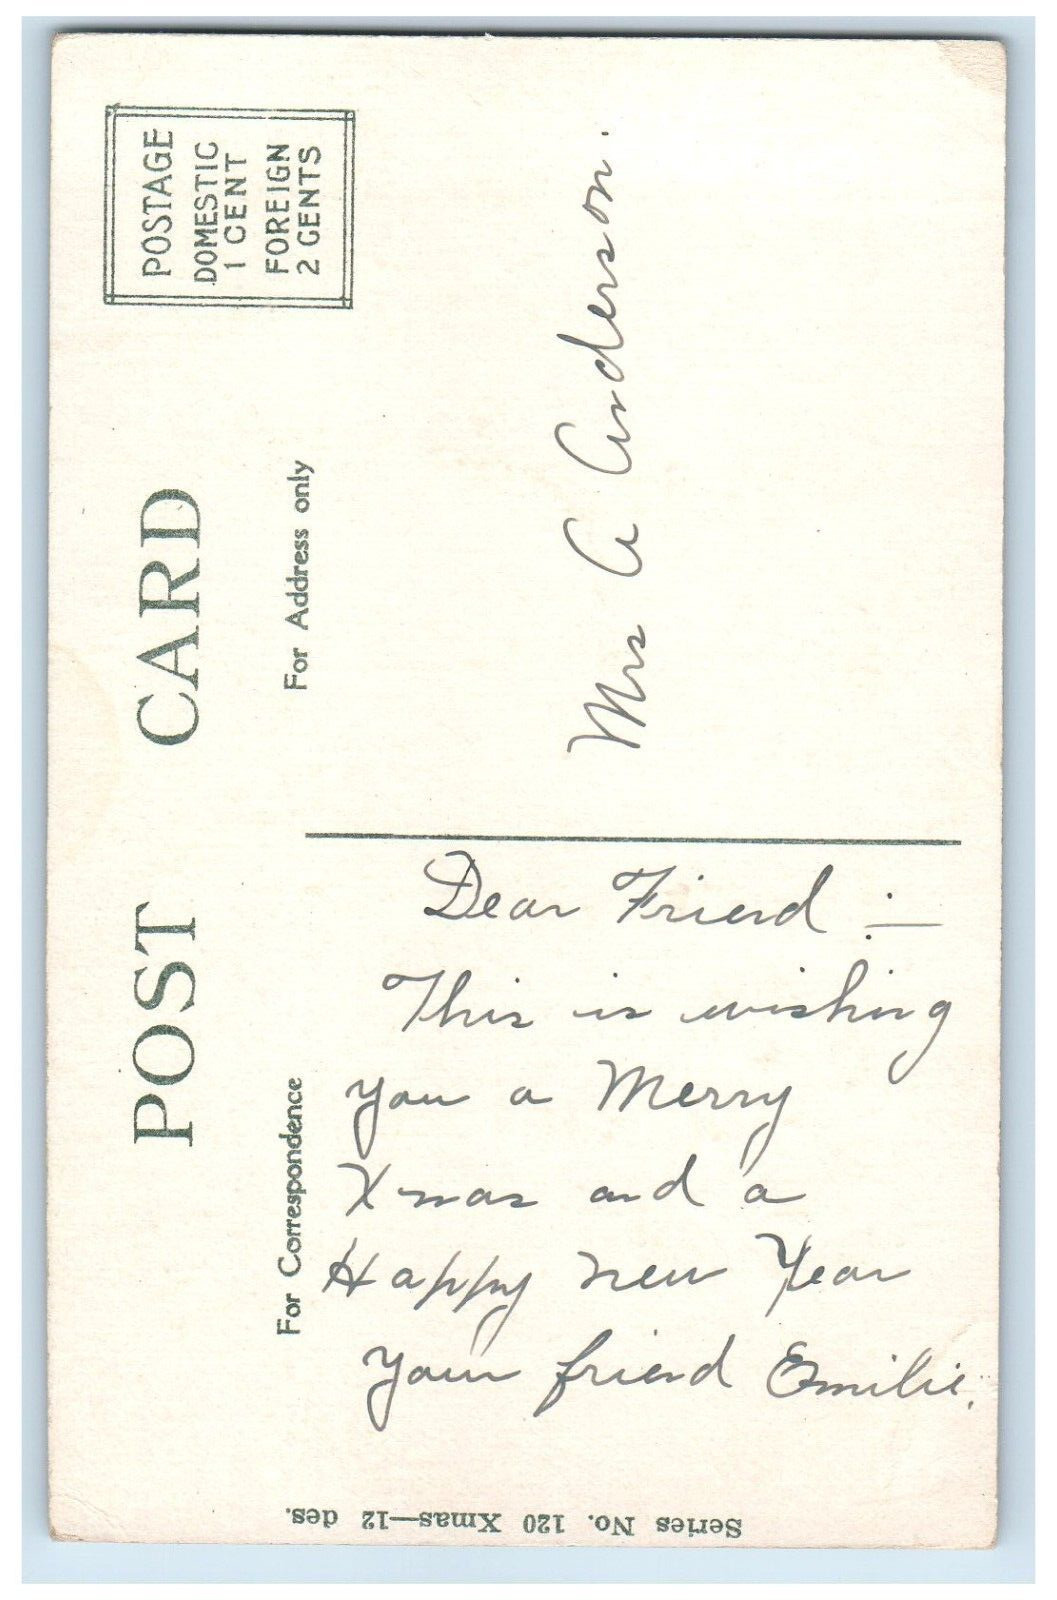 POST CARD
POSTAGE
DOMESTIC
1 CENT
FOREIGN
2 CENTS
For Correspondence
For Address only
Mrs A Anderson.
Dear Friend :—
This is wishing
you a Merry
Xmas and a
Happy New Year
Your friend Emilie.
Series No. 120 Xmas—12 des.